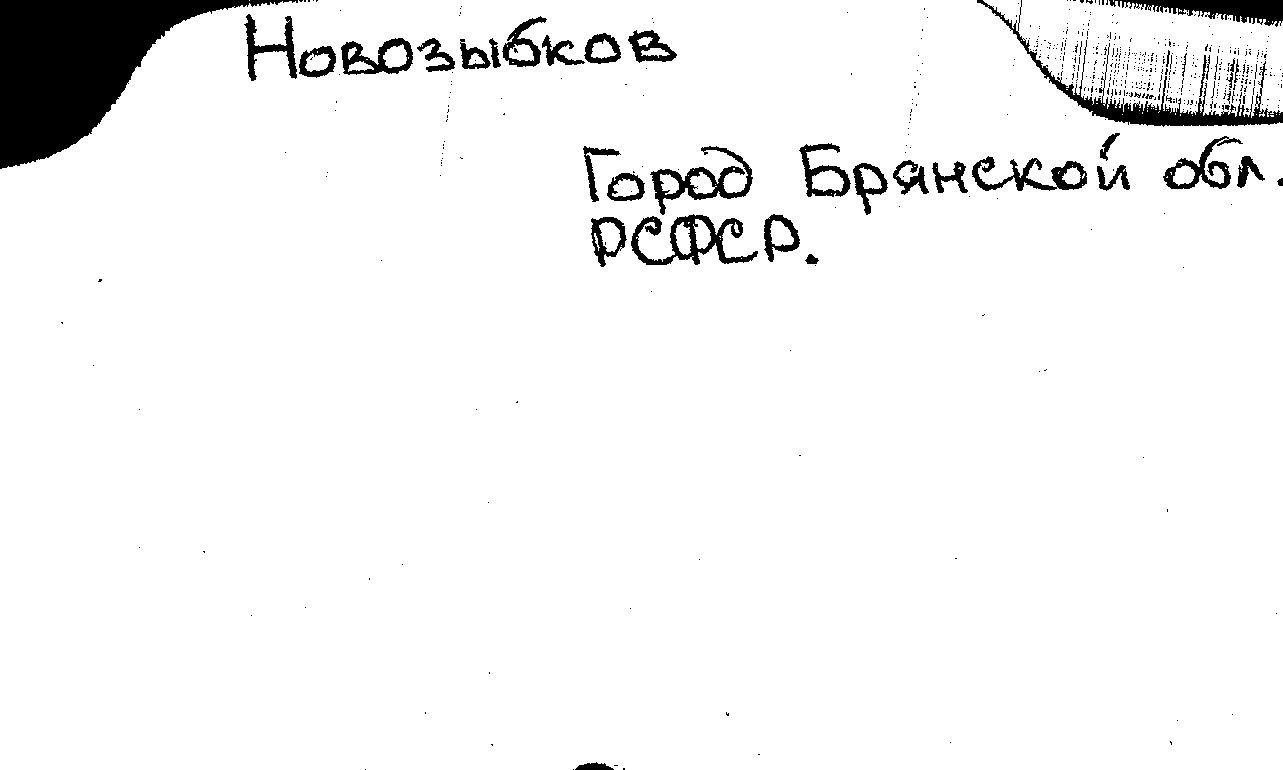 Новозыбков
Город Брянской обл.
РСФСР.